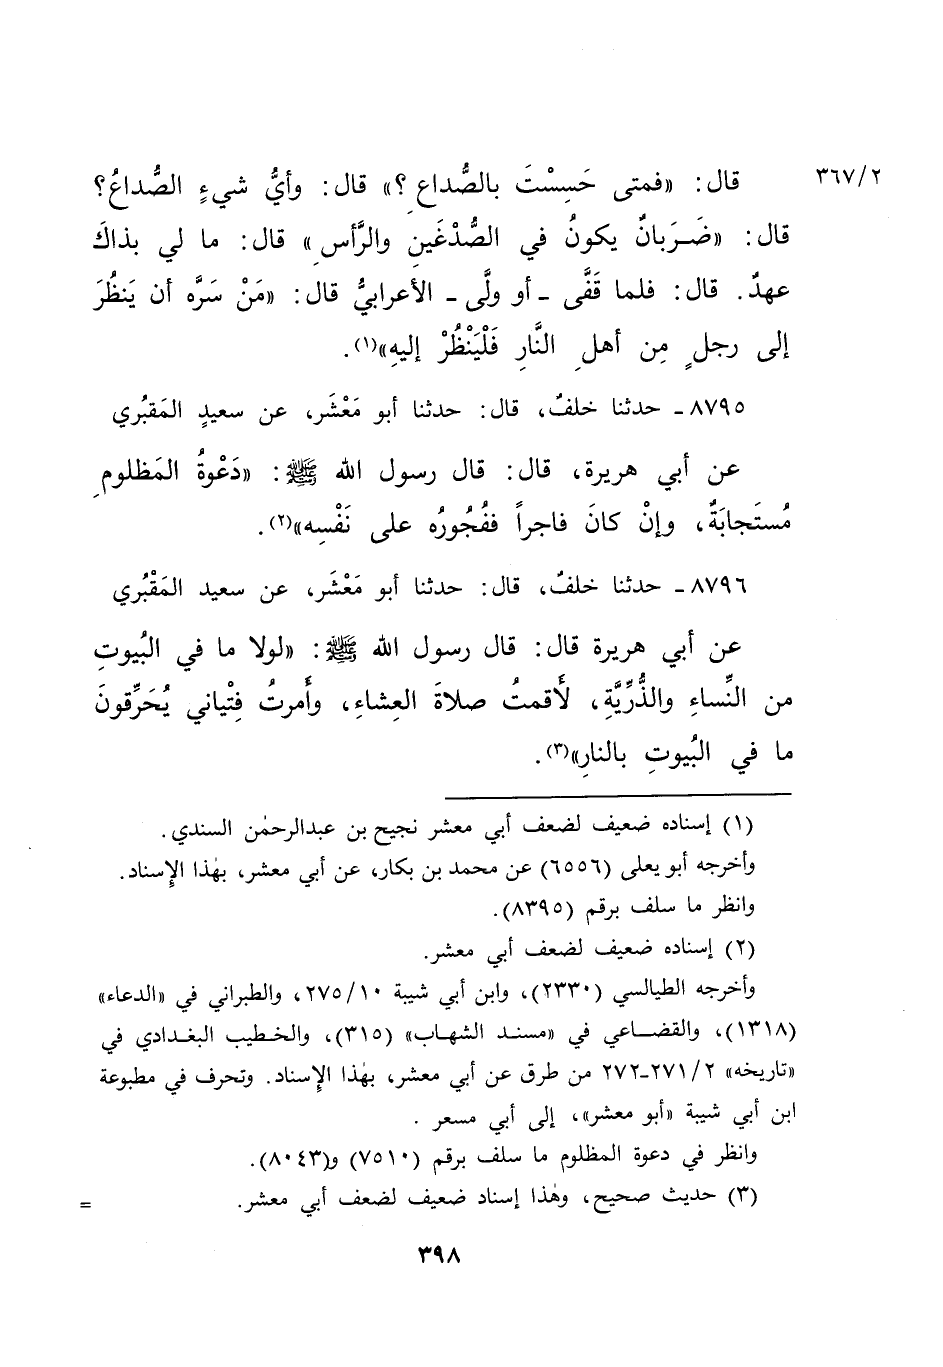 ٣٦٧/٢
قال: «فمتى حَسِسْتَ بالصُّداعِ؟» قال: وأيُّ شيءٍ الصُّداعُ؟
قال: «ضَرَبانٌ يكونُ في الصُّدْغَينِ والرَّأسِ» قال: ما لي بذاكَ
عهدٌ. قال: فلما قَفَّى ـ أو ولَّى ـ الأعرابيُّ قال: «مَنْ سَرَّه أن يَنظُرَ
إلى رجلٍ مِن أهلِ النَّارِ فَلْيَنْظُرْ إليهِ»(١).
٨٧٩٥ ـ حدثنا خلفٌ، قال: حدثنا أبو مَعْشَر، عن سعيدٍ المَقبُري
عن أبي هريرة، قال: قال رسول الله ﷺ: «دَعْوةُ المَظلومِ
مُستَجابَةٌ، وإنْ كانَ فاجراً ففُجُورُه على نَفْسِه»(٢).
٨٧٩٦ ـ حدثنا خلفٌ، قال: حدثنا أبو مَعْشَر، عن سعيد المَقْبُري
عن أبي هريرة قال: قال رسول الله ﷺ: «لولا ما في البُيوتِ
من النِّساءِ والذُّرِّيَّةِ، لأَقمتُ صلاةَ العِشاءِ، وأَمرتُ فِتْياني يُحَرِّقونَ
ما في البُيوتِ بالنارِ»(٣).
(١) إسناده ضعيف لضعف أبي معشر نجيح بن عبدالرحمٰن السندي.
وأخرجه أبو يعلى (٦٥٥٦) عن محمد بن بكار، عن أبي معشر، بهٰذا الإسناد.
وانظر ما سلف برقم (٨٣٩٥).
(٢) إسناده ضعيف لضعف أبي معشر.
وأخرجه الطيالسي (٢٣٣٠)، وابن أبي شيبة ٢٧٥/١٠، والطبراني في «الدعاء»
(١٣١٨)، والقضاعي في «مسند الشهاب» (٣١٥)، والخطيب البغدادي في
«تاريخه» ٢٧١/٢ـ٢٧٢ من طرق عن أبي معشر، بهٰذا الإسناد. وتحرف في مطبوعة
ابن أبي شيبة «أبو معشر»، إلى أبي مسعر .
وانظر في دعوة المظلوم ما سلف برقم (٧٥١٠) و(٨٠٤٣).
(٣) حديث صحيح، وهٰذا إسناد ضعيف لضعف أبي معشر.
=
٣٩٨